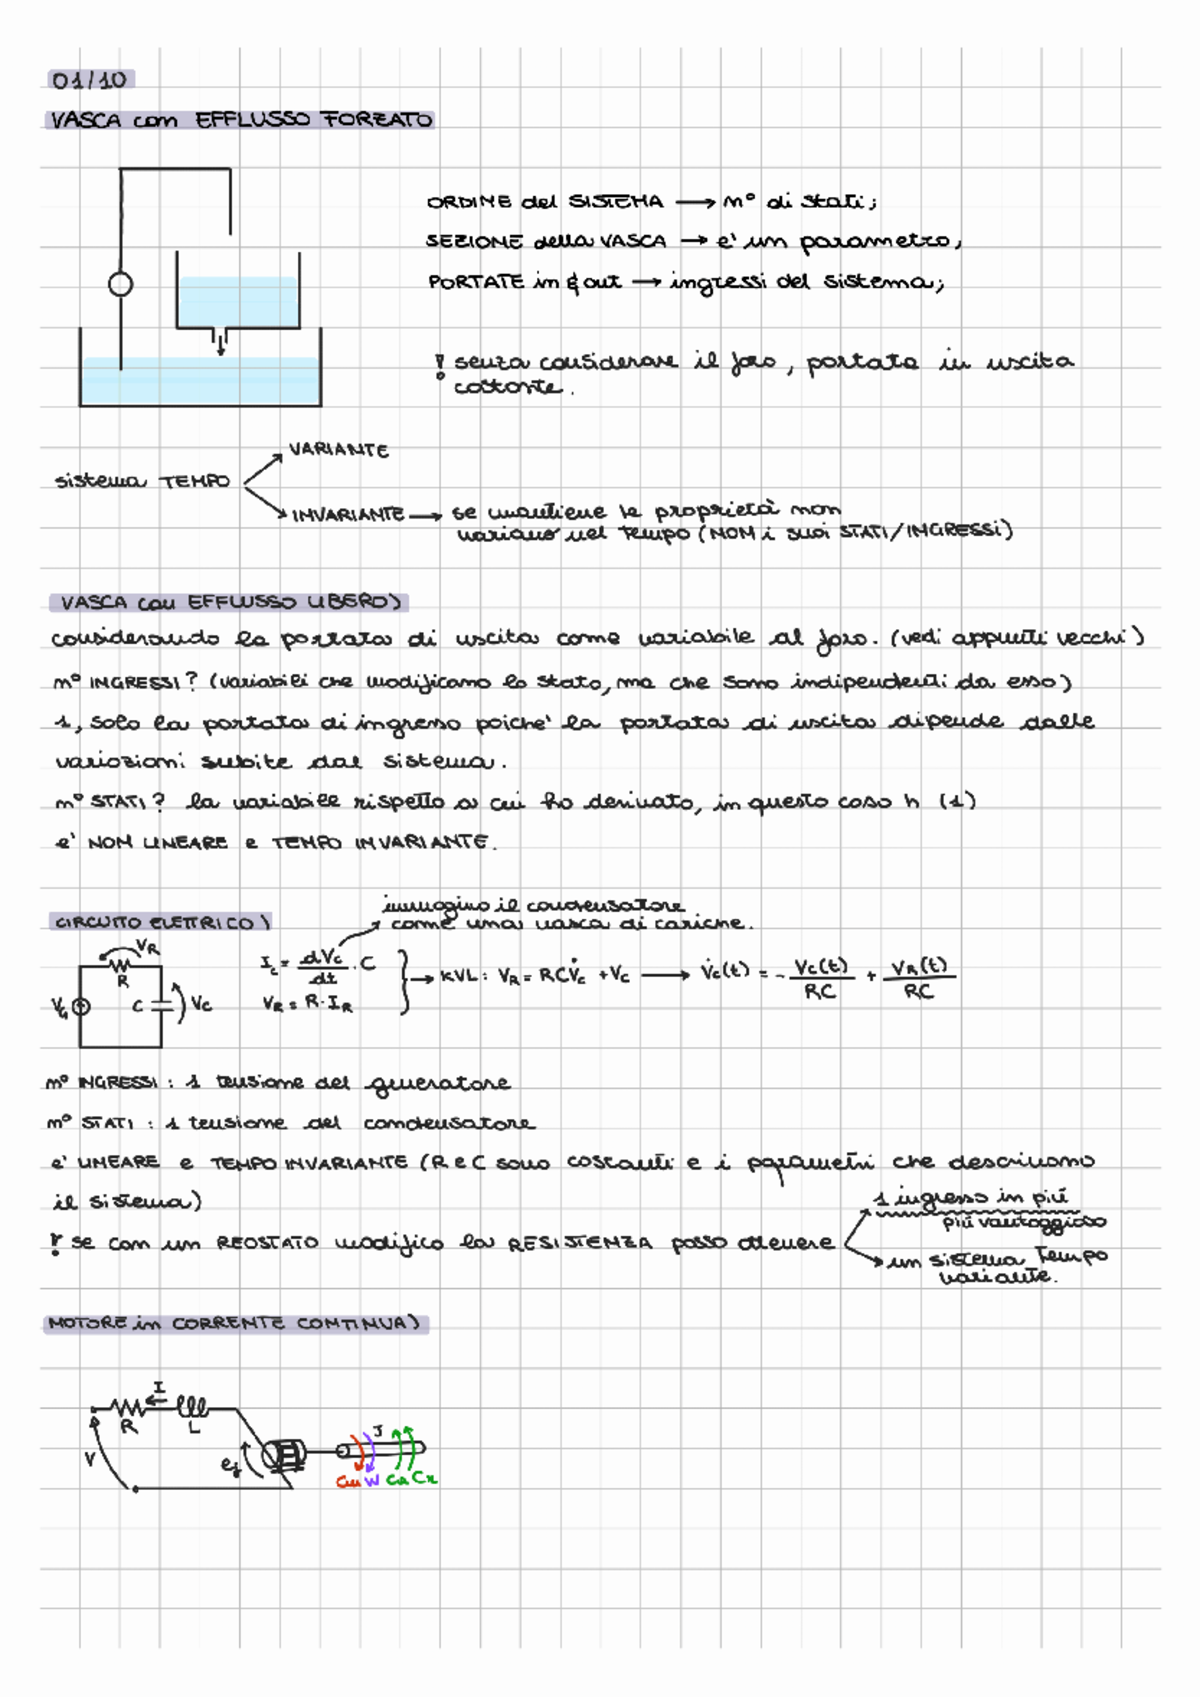 01/10
VASCA con EFFLUSSO FORZATO
ORDINE del SISTEMA → n° di stati;
SEZIONE della VASCA → e' un parametro;
PORTATE in & out → ingressi del sistema;
! senza considerare il foro, portata in uscita
costante.
VARIANTE
sistema TEMPO
INVARIANTE → se mantiene le proprietà non
variano nel tempo (NON i suoi STATI/INGRESSI)
VASCA con EFFLUSSO LIBERO)
considerando la portata di uscita come variabile al foro. (vedi appunti vecchi)
n° INGRESSI? (variabili che modificano lo stato, ma che sono indipendenti da esso)
1, solo la portata di ingresso poiche' la portata di uscita dipende dalle
variazioni subite dal sistema.
n° STATI? la variabile rispetto a cui ho derivato, in questo caso h (1)
e' NON LINEARE e TEMPO INVARIANTE.
immagino il condensatore
CIRCUITO ELETTRICO) come una vasca di cariche.
VR
R
VG
C
Vc
Ic = dVc/dt · C
VR = R · IR
→ KVL: VR = RCV̇c + Vc → V̇c(t) = - Vc(t)/RC + VR(t)/RC
n° INGRESSI: 1 tensione del generatore
n° STATI: 1 tensione del condensatore
e' LINEARE e TEMPO INVARIANTE (R e C sono costanti e i parametri che descrivono
il sistema)
1 ingresso in più
più vantaggioso
! se con un REOSTATO modifico la RESISTENZA posso ottenere
un sistema tempo
variante.
MOTORE in CORRENTE CONTINUA)
I
R
L
V
ef
J
Cm W Ca Cr